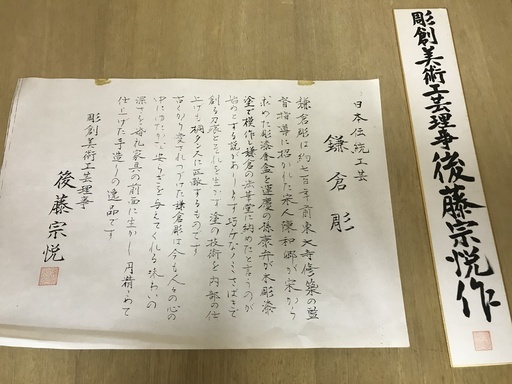 彫創美術工芸理事後藤宗悦作
日本伝統工芸
鎌倉彫
鎌倉彫は約七百年前東大寺修築の監
督指導に招かれた宋人陳和卿が宋から
求めた彫漆香盆を運慶の孫康弁が木彫漆
塗で模作し鎌倉の法華堂に納めたと言うのが
始めとする説があります巧みなノミさばきで
創る刀痕とそれを生かす塗の技術を内部の仕
上げも桐タンスに匹敵するものです
古から愛されつづけた鎌倉彫は今も人々の心の
中にゆたかな安らぎを与えてくれる味わいの
深さを家具の前面に生かし丹精こめて
仕上げた手造りの逸品です
彫創美術工芸理事
後藤宗悦